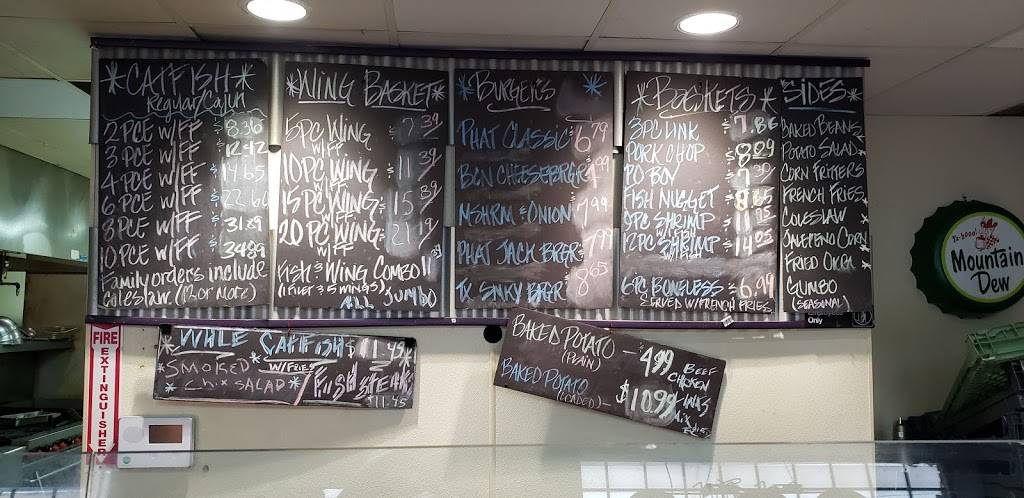 *CATFISH*
Regular/Cajun
2 PCE W/FF $8.36
3 PCE W/FF $12.42
4 PCE W/FF $14.65
6 PCE W/FF $22.60
8 PCE W/FF $31.89
10 PCE W/FF $34.89
Family orders include
coleslaw. (12 or more)
*WING BASKET*
5PC WING $7.39
W/FF
10 PC WING $11.39
W/FF
15 PC WING $15.39
W/FF
20 PC WING $21.19
W/FF
FISH & WING COMBO 11
(1 FILET & 5 WINGS)
ALL JUMBO
*BURGERS*
PHAT CLASSIC $6.79
BCN CHEESEBRGR
MSHRM & ONION $7.99
PHAT JACK BRGR $7.99
TX SNKY BRGR $8.65
*BASKETS*
3PC LINK $7.86
PORK CHOP $8.29
PO BOY $7.39
FISH NUGGET $8.65
9PC SHRIMP $11.75
W/FISH
12PC SHRIMP $14.05
W/FISH
6PC BONELESS $6.99
SERVED W/FRENCH FRIES
*SIDES*
BAKED BEANS
POTATO SALAD
CORN FRITTERS
FRENCH FRIES
COLESLAW
JALEPENO CORN
FRIED OKRA
GUMBO
(SEASONAL)
Employees
Only
WHLE CATFISH $11.45
W/FRIES
*SMOKED*
*CHIX SALAD*
FISH STEAK
$11.45
BAKED POTATO — 4.99
(PLAIN)
BAKED POTATO
(LOADED) — $10.99
BEEF
CHICKEN
LINKS
MIX
FIRE
EXTINGUISHER
Ya-hooo!
Mountain
Dew